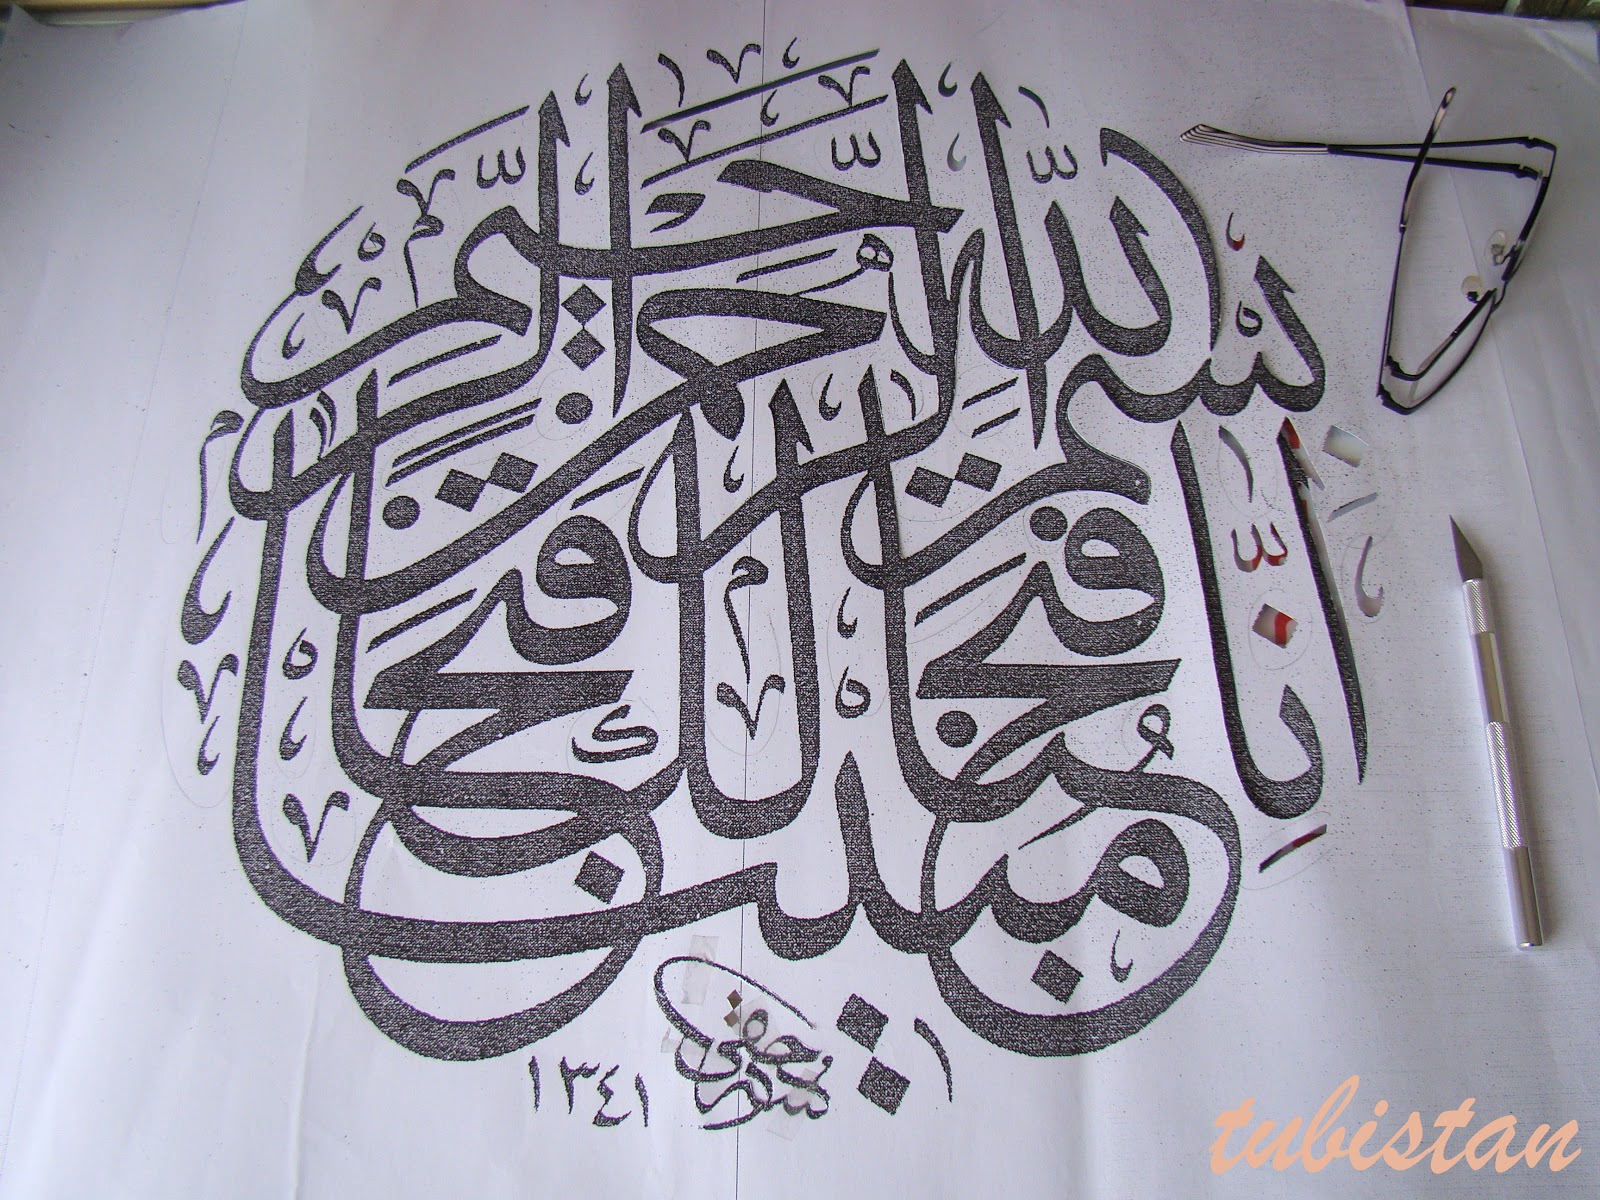 بسم الله الرحمن الرحيم
انا فتحنا لك فتحا مبينا
حقي
١٣٤١
tubistan